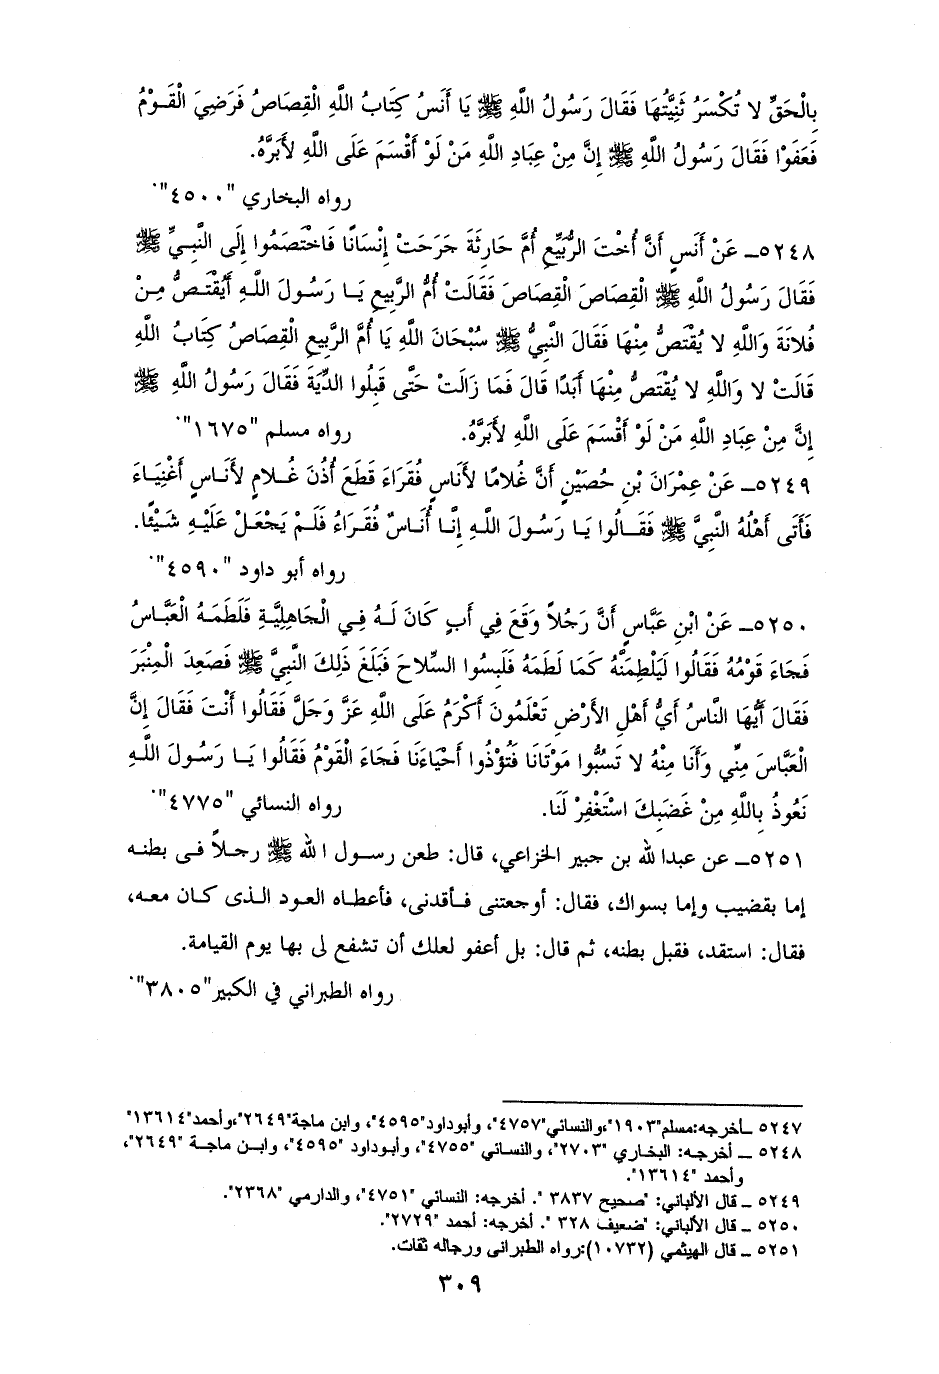 بِالْحَقِّ لا تُكْسَرُ ثَنِيَّتُهَا فَقَالَ رَسُولُ اللَّهِ ﷺ يَا أَنَسُ كِتَابُ اللَّهِ الْقِصَاصُ فَرَضِيَ الْقَوْمُ
فَعَفَوْا فَقَالَ رَسُولُ اللَّهِ ﷺ إِنَّ مِنْ عِبَادِ اللَّهِ مَنْ لَوْ أَقْسَمَ عَلَى اللَّهِ لأَبَرَّهُ.
رواه البخاري "٤٥٠٠".
٥٢٤٨ـ عَنْ أَنَسٍ أَنَّ أُخْتَ الرُّبَيِّعِ أُمَّ حَارِثَةَ جَرَحَتْ إِنْسَانًا فَاخْتَصَمُوا إِلَى النَّبِيِّ ﷺ
فَقَالَ رَسُولُ اللَّهِ ﷺ الْقِصَاصَ الْقِصَاصَ فَقَالَتْ أُمُّ الرَّبِيعِ يَا رَسُولَ اللَّهِ أَيُقْتَصُّ مِنْ
فُلانَةَ وَاللَّهِ لا يُقْتَصُّ مِنْهَا فَقَالَ النَّبِيُّ ﷺ سُبْحَانَ اللَّهِ يَا أُمَّ الرَّبِيعِ الْقِصَاصُ كِتَابُ اللَّهِ
قَالَتْ لا وَاللَّهِ لا يُقْتَصُّ مِنْهَا أَبَدًا قَالَ فَمَا زَالَتْ حَتَّى قَبِلُوا الدِّيَةَ فَقَالَ رَسُولُ اللَّهِ ﷺ
إِنَّ مِنْ عِبَادِ اللَّهِ مَنْ لَوْ أَقْسَمَ عَلَى اللَّهِ لأَبَرَّهُ. رواه مسلم "١٦٧٥".
٥٢٤٩ـ عَنْ عِمْرَانَ بْنِ حُصَيْنٍ أَنَّ غُلامًا لأُنَاسٍ فُقَرَاءَ قَطَعَ أُذُنَ غُلامٍ لأُنَاسٍ أَغْنِيَاءَ
فَأَتَى أَهْلُهُ النَّبِيَّ ﷺ فَقَالُوا يَا رَسُولَ اللَّهِ إِنَّا أُنَاسٌ فُقَرَاءُ فَلَمْ يَجْعَلْ عَلَيْهِ شَيْئًا.
رواه أبو داود "٤٥٩٠".
٥٢٥٠ـ عَنْ ابْنِ عَبَّاسٍ أَنَّ رَجُلاً وَقَعَ فِي أَبٍ كَانَ لَهُ فِي الْجَاهِلِيَّةِ فَلَطَمَهُ الْعَبَّاسُ
فَجَاءَ قَوْمُهُ فَقَالُوا لَيَلْطِمَنَّهُ كَمَا لَطَمَهُ فَلَبِسُوا السِّلاحَ فَبَلَغَ ذَلِكَ النَّبِيَّ ﷺ فَصَعِدَ الْمِنْبَرَ
فَقَالَ أَيُّهَا النَّاسُ أَيُّ أَهْلِ الأَرْضِ تَعْلَمُونَ أَكْرَمُ عَلَى اللَّهِ عَزَّ وَجَلَّ فَقَالُوا أَنْتَ فَقَالَ إِنَّ
الْعَبَّاسَ مِنِّي وَأَنَا مِنْهُ لا تَسُبُّوا مَوْتَانَا فَتُؤْذُوا أَحْيَاءَنَا فَجَاءَ الْقَوْمُ فَقَالُوا يَا رَسُولَ اللَّهِ
نَعُوذُ بِاللَّهِ مِنْ غَضَبِكَ اسْتَغْفِرْ لَنَا. رواه النسائي "٤٧٧٥".
٥٢٥١ـ عن عبدا لله بن جبير الخزاعي، قال: طعن رسول ا لله ﷺ رجلاً فى بطنه
إما بقضيب وإما بسواك، فقال: أوجعتنى فأقدنى، فأعطاه العود الذى كان معه،
فقال: استقد، فقبل بطنه، ثم قال: بل أعفو لعلك أن تشفع لى بها يوم القيامة.
رواه الطبراني في الكبير"٣٨٠٥".
٥٢٤٧ ـأخرجه:مسلم"١٩٠٣"،والنسائي"٤٧٥٧"، وأبوداود"٤٥٩٥"، وابن ماجة"٢٦٤٩"،وأحمد"١٣٦١٤"
٥٢٤٨ ـ أخرجه: البخاري "٢٧٠٣"، والنسائي "٤٧٥٥"، وأبوداود "٤٥٩٥"، وابن ماجة "٢٦٤٩"،
وأحمد "١٣٦١٤".
٥٢٤٩ ـ قال الألباني: "صحيح ٣٨٣٧ ". أخرجه: النسائي "٤٧٥١"، والدارمي "٢٣٦٨".
٥٢٥٠ ـ قال الألباني: "ضعيف ٣٢٨ ". أخرجه: أحمد "٢٧٢٩".
٥٢٥١ ـ قال الهيثمي (١٠٧٣٢):رواه الطبرانى ورجاله ثقات.
٣٠٩